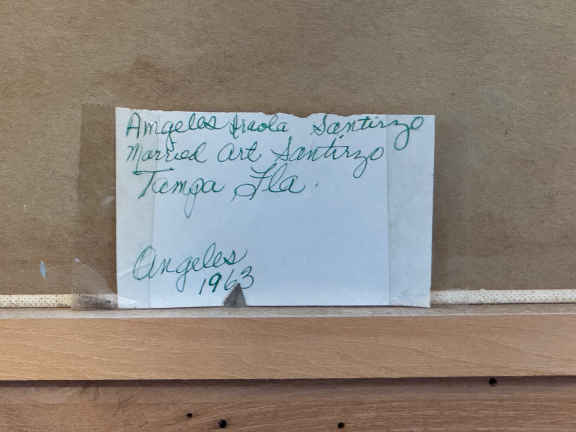 Amgeles Iraola Santirzo
Married Art Santirzo
Tampa, Fla.
Angeles
1963